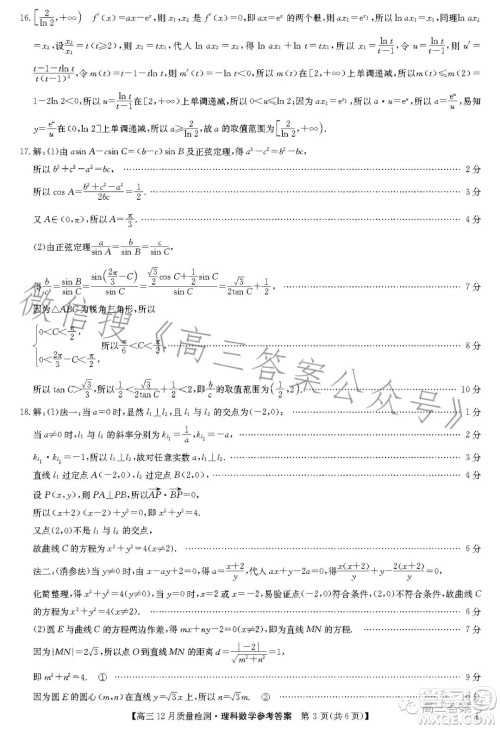 16.[2/ln 2,+∞) f′(x)=ax−eˣ,则x₁,x₂是f′(x)=0,即ax=eˣ的两个根,则ax₁=e^x₁,所以ln ax₁=x₁,同理ln ax₂
=x₂,设x₂/x₁=t(t⩾2),则x₂=tx₁,代入ln ax₂=x₂,得ln ax₁+ln t=tx₁,所以x₁=ln t/(t−1),令u=ln t/(t−1),则u′=
(t−1−tln t)/(t(t−1)²),令m(t)=t−1−tln t,则m′(t)=−ln t<0,所以m(t)在[2,+∞)上单调递减,所以m(t)⩽m(2)=
1−2ln 2<0,所以u=ln t/(t−1)在[2,+∞)上单调递减,所以0<u⩽ln 2;因为ax₁=e^x₁,所以a·u=eᵘ,所以a=eᵘ/u,易知
y=eᵘ/u在(0,ln 2]上单调递减,所以a⩾2/ln 2,故a的取值范围为[2/ln 2,+∞).
17.解:(1)由asin A−csin C=(b−c)sin B及正弦定理,得a²−c²=b²−bc,
所以b²+c²−a²=bc. 2分
所以cos A=(b²+c²−a²)/2bc=1/2. 3分
又A∈(0,π),所以A=π/3. 4分
(2)由正弦定理a/sin A=b/sin B=c/sin C,
得b/c=sin B/sin C=sin(2π/3−C)/sin C=(√3/2 cos C+1/2 sin C)/sin C=√3/(2tan C)+1/2. 6分
因为△ABC为锐角三角形,所以
{0<C<π/2,
0<2π/3−C<π/2, 所以π/6<C<π/2. 8分
所以tan C>√3/3,所以1/2<√3/(2tan C)+1/2<2,即b/c的取值范围为(1/2,2). 10分
18.解:(1)法一:当a=0时,显然l₁⊥l₂,且l₁与l₂的交点为(−2,0); 1分
当a≠0时,l₁与l₂的斜率分别为k_l₁=1/a,k_l₂=−a, 2分
k_l₁·k_l₂=−1,所以l₁⊥l₂,故对任意实数a,l₁⊥l₂. 3分
直线l₁过定点A(−2,0),l₂过定点B(2,0), 4分
设P(x,y),则PA⊥PB,所以AP·BP=0,
所以(x+2)(x−2)+y²=0,即x²+y²=4.
又点(2,0)不是l₁与l₂的交点,
故曲线C的方程为x²+y²=4(x≠2). 6分
法二:(消参法)当y≠0时,由x−ay+2=0,得a=(x+2)/y,代入ax+y−2a=0,得x(x+2)/y+y−2(x+2)/y=0,
化简整理,得x²+y²=4(y≠0);当y=0时,x=±2,易验证,点(−2,0)符合条件,点(2,0)不符合条件,故曲线C
的方程为x²+y²=4(x≠2). 6分
(2)圆E与曲线C的方程两边作差,得mx+ny−2=0,即为直线MN的方程. 7分
因为|MN|=2√3,所以点O到直线MN的距离d=|−2|/√(m²+n²)=1,
即m²+n²=4. ① 9分
因为圆E的圆心(m,n)在直线y=√3x上,所以n=√3m. ② 10分
【高三12月质量检测·理科数学参考答案 第3页(共6页)】
微信搜《高三答案公众号》
高三答案